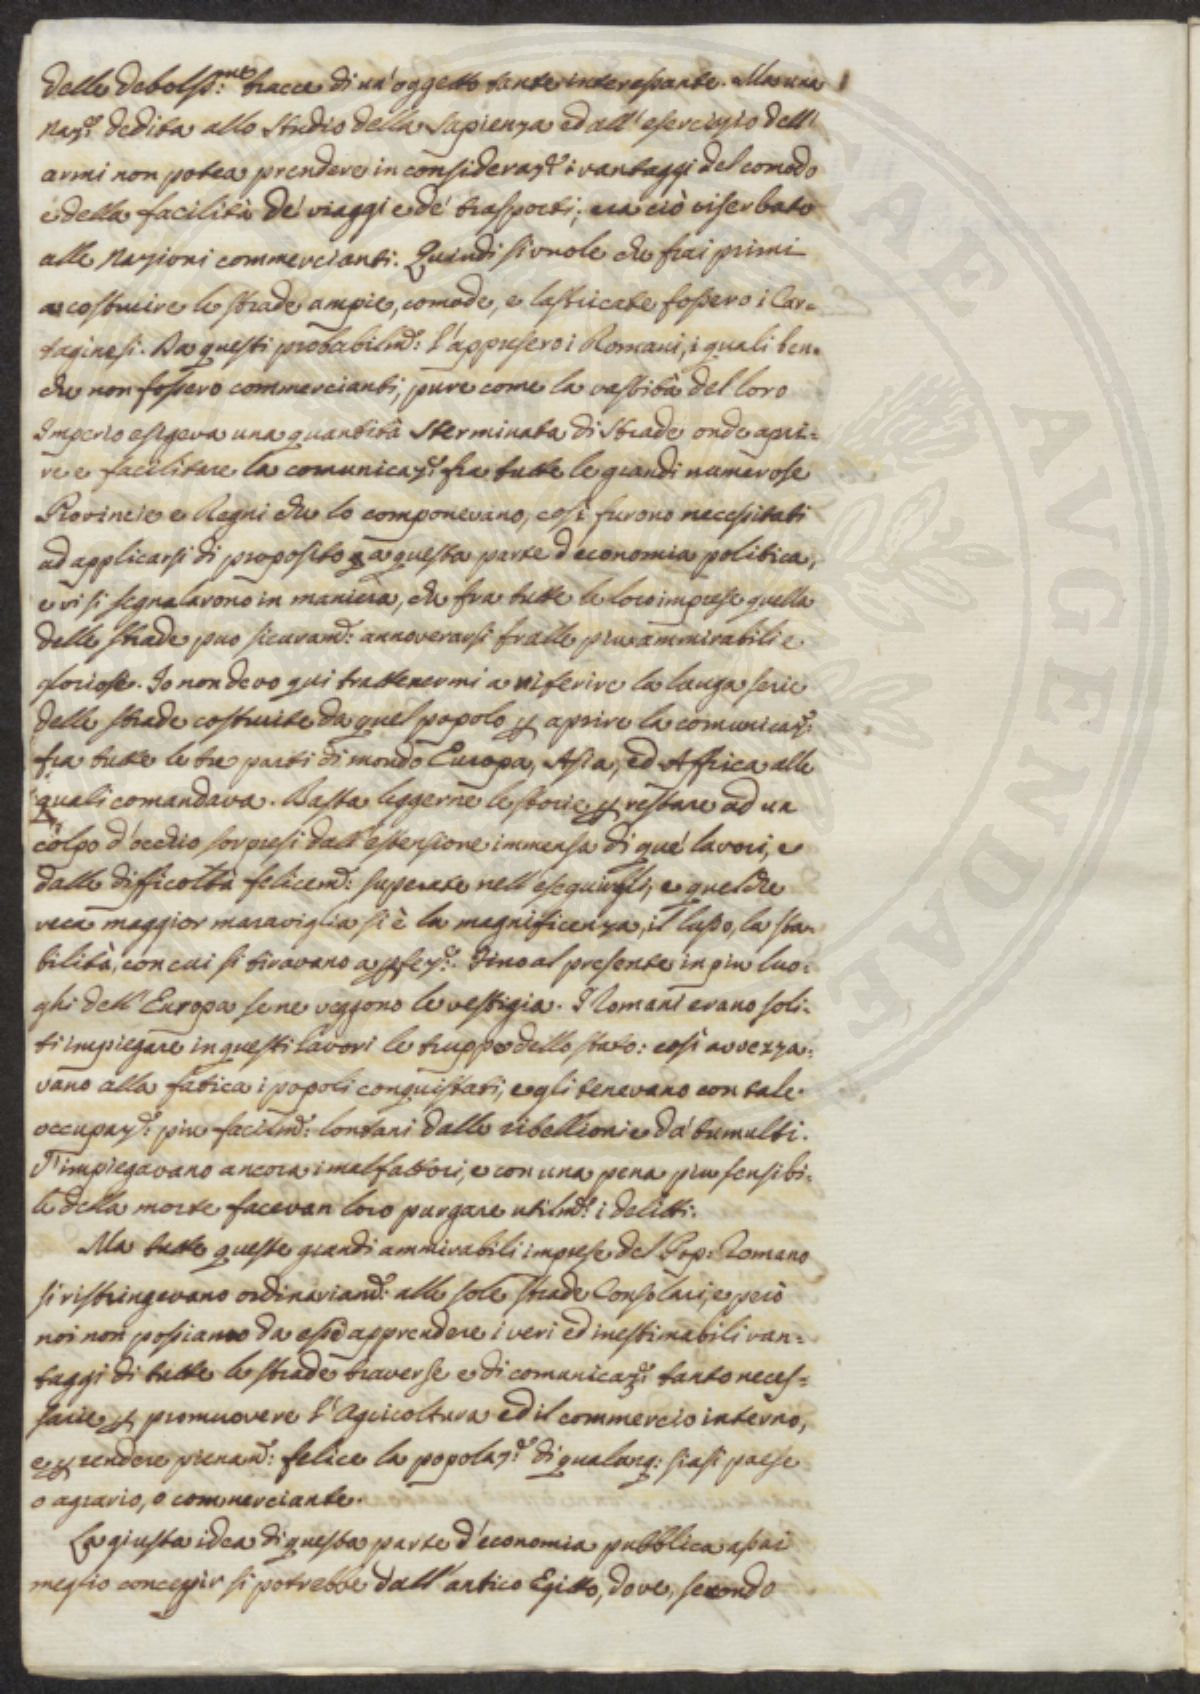 delle debolss:me tracce di un'oggetto tanto interessante. Ma una
Naz:e dedita allo studio della Sapienza ed all'esercizio dell'
armi non potea prendere in consideraz:e i vantaggi del comodo
e della facilità de' viaggi e de' trasporti; era ciò riserbato
alle Nazioni commercianti. Quindi si vuole che fra i primi
a costruire le strade ampie, comode, e lastricate fossero i Car-
taginesi. Da questi probabilm:e l'appresero i Romani, i quali ben-
che non fossero commercianti, pure come la vastità del loro
Imperio esigeva una quantità sterminata di strade onde apri-
re e facilitare la comunicaz:e fra tutte le grandi numerose
Provincie e Regni che lo componevano, così furono necessitati
ad applicarsi di proposito a questa parte d'economia politica,
e vi si segnalarono in maniera, che fra tutte le loro imprese quella
delle strade può sicuram:e annoverarsi fralle più ammirabili e
gloriose. Io non devo qui trattenermi a riferire la lunga serie
delle strade costruite da quel popolo p aprire la comunicaz:e
fra tutte le tre parti di mondo Europa, Asia, ed Affrica alle
quali comandava. Basta leggerne le storie p restare ad un
colpo d'occhio sorpresi dall'estensione immensa di que' lavori, e
dalle difficoltà felicem:e superate nell'eseguirgli, e quel che
reca maggior maraviglia si è la magnificenza, il lusso, la sta-
bilità, con cui si tiravano a pfez:e. Fino al presente in più luo-
ghi dell'Europa se ne veggono le vestigia. I Romani erano soli-
ti impiegare in questi lavori le truppe dello stato: così avvezza-
vano alla fatica i popoli conquistati, e gli tenevano con tale
occupaz:e più facilm:e lontani dalle ribellioni e da' tumulti.
V'impiegavano ancora i malfattori, e con una pena più sensibi-
le della morte facevan loro purgare utilm:e i delitti.
Ma tutte queste grandi ammirabili imprese del Pop: Romano
si ristringevano ordinariam:e alle sole strade Consolari, e però
noi non possiamo da esse apprendere i veri ed inestimabili van-
taggi di tutte le strade traverse e di comunicaz:e tanto neces-
sarie p promuovere l'Agricoltura ed il commercio interno,
e p rendere pienam:e felice la popolaz:e di qualunq: siasi paese
o agrario, o commerciante.
La giusta idea di questa parte d'economia pubblica assai
meglio concepir si potrebbe dall'antico Egitto, dove, secondo